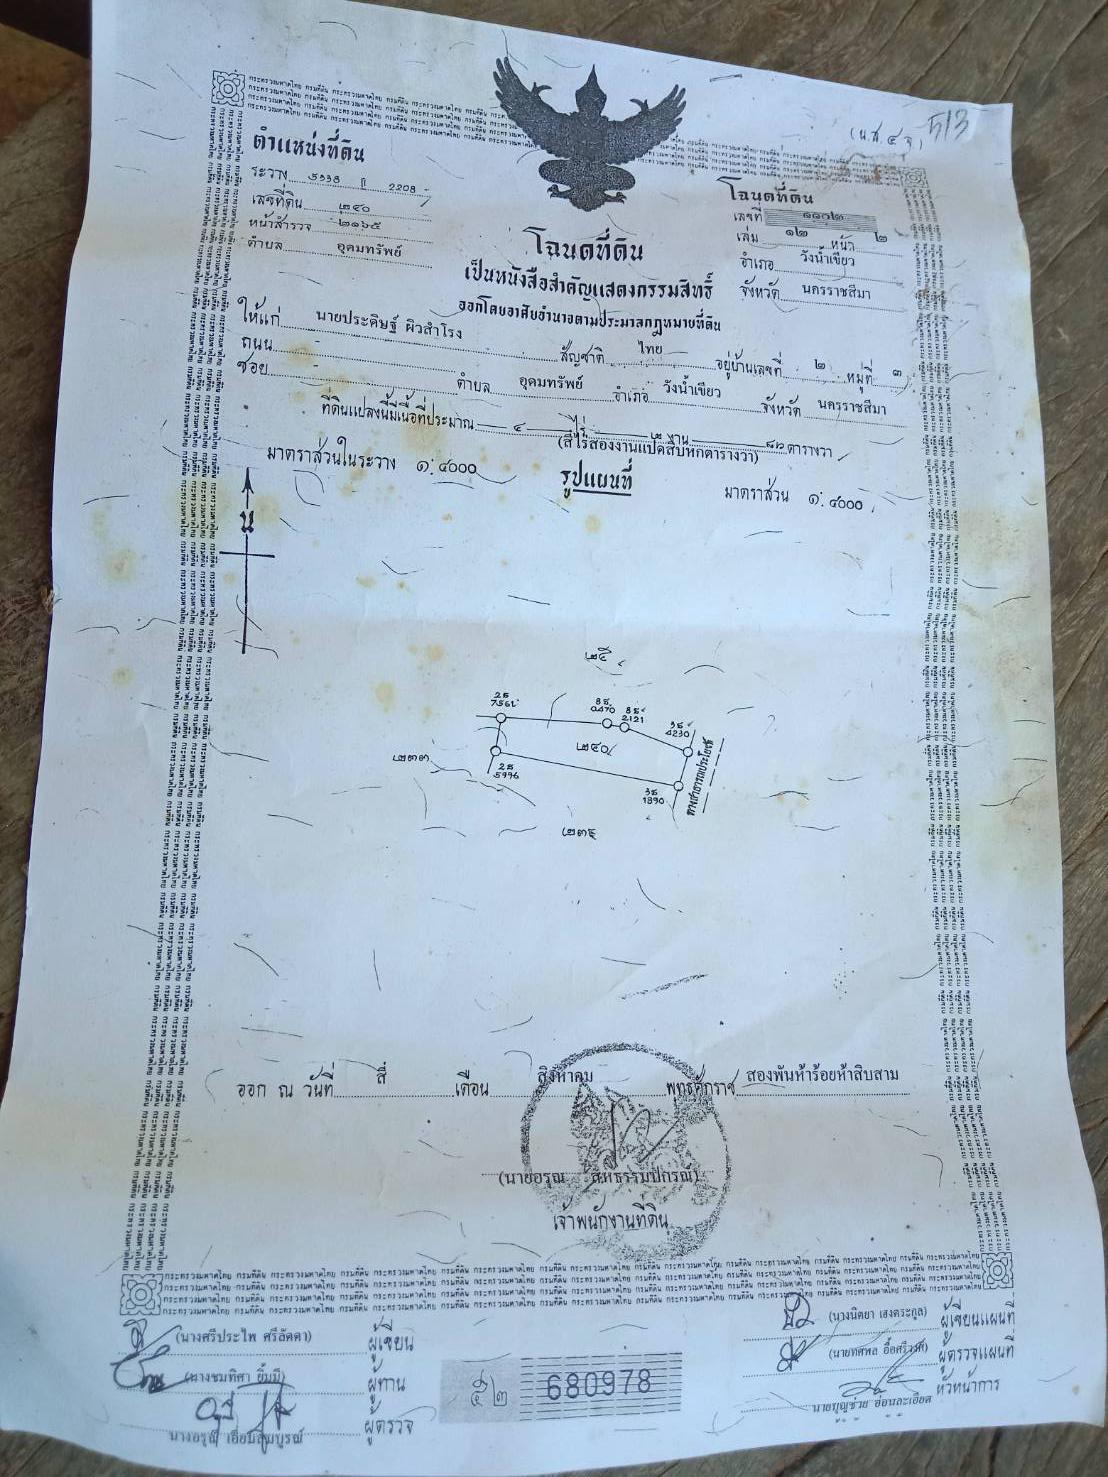 (น.ส.๔ จ)
ตำแหน่งที่ดิน
ระวาง 5338 ॥ 2208
เลขที่ดิน ๒๔๐
หน้าสำรวจ ๒๑๖๕
ตำบล อุดมทรัพย์
โฉนดที่ดิน
เลขที่ ๑๑๐๒
เล่ม ๑๒ หน้า ๒
อำเภอ วังน้ำเขียว
จังหวัด นครราชสีมา
โฉนดที่ดิน
เป็นหนังสือสำคัญแสดงกรรมสิทธิ์
ออกโดยอาศัยอำนาจตามประมวลกฎหมายที่ดิน
ให้แก่ นายประดิษฐ์ ผิวสำโรง สัญชาติ ไทย อยู่บ้านเลขที่ ๒ หมู่ที่ ๓
ถนน -
ซอย - ตำบล อุดมทรัพย์ อำเภอ วังน้ำเขียว จังหวัด นครราชสีมา
ที่ดินแปลงนี้มีเนื้อที่ประมาณ ๔ ไร่ งาน ๘๖ ตารางวา
(สี่ไร่สองงานแปดสิบหกตารางวา)
มาตราส่วนในระวาง ๑:๔๐๐๐
รูปแผนที่
มาตราส่วน ๑:๔๐๐๐
น
๒๕
2ธ
7561
8ธ
0470
8ธ
2121
3ธ
4230
๒๔๐
๒๓๓
2ธ
5996
3ธ
1890
ทางสาธารณประโยชน์
๒๓๕
ออก ณ วันที่ สี่ เดือน สิงหาคม พุทธศักราช สองพันห้าร้อยห้าสิบสาม
(นายอรุณ สหธรรมปกรณ์)
เจ้าพนักงานที่ดิน
(นางศรีประไพ ศรีลัดดา) ผู้เขียน
(นางชมทิศา ยิ้มมี) ผู้ทาน
นางอรุณี เอี่ยมสมบูรณ์ ผู้ตรวจ
๕๒ 680978
(นางนิตยา เฮงตระกูล) ผู้เขียนแผนที่
(นายทศพล อื้อศรีวงศ์) ผู้ตรวจแผนที่
นายบุญช่วย อ่อนละเอียด หัวหน้าการ